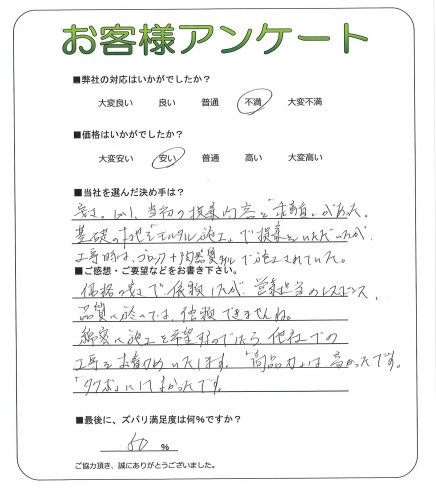 お客様アンケート
■弊社の対応はいかがでしたか?
大変良い 良い 普通 不満 大変不満
■価格はいかがでしたか?
大変安い 安い 普通 高い 大変高い
■当社を選んだ決め手は?
安さ。しかし、当初の提案内容と「相違」があった。
基礎の土地をモルタル施工」で提案をいただいたが、
工事時は、ブロック+ で施工されていた。
■ご感想・ご要望などをお書き下さい。
価格の安さで依頼したが、営業担当のレスポンス、
品質に於いては、信頼できませんね。
綿密な施工を希望するのでしたら、他社での
工事をお勧めいたします。「商品力」は高かったです。
「タクボ」にしてよかったです。
■最後に、ズバリ満足度は何%ですか?
50 %
ご協力頂き、誠にありがとうございました。